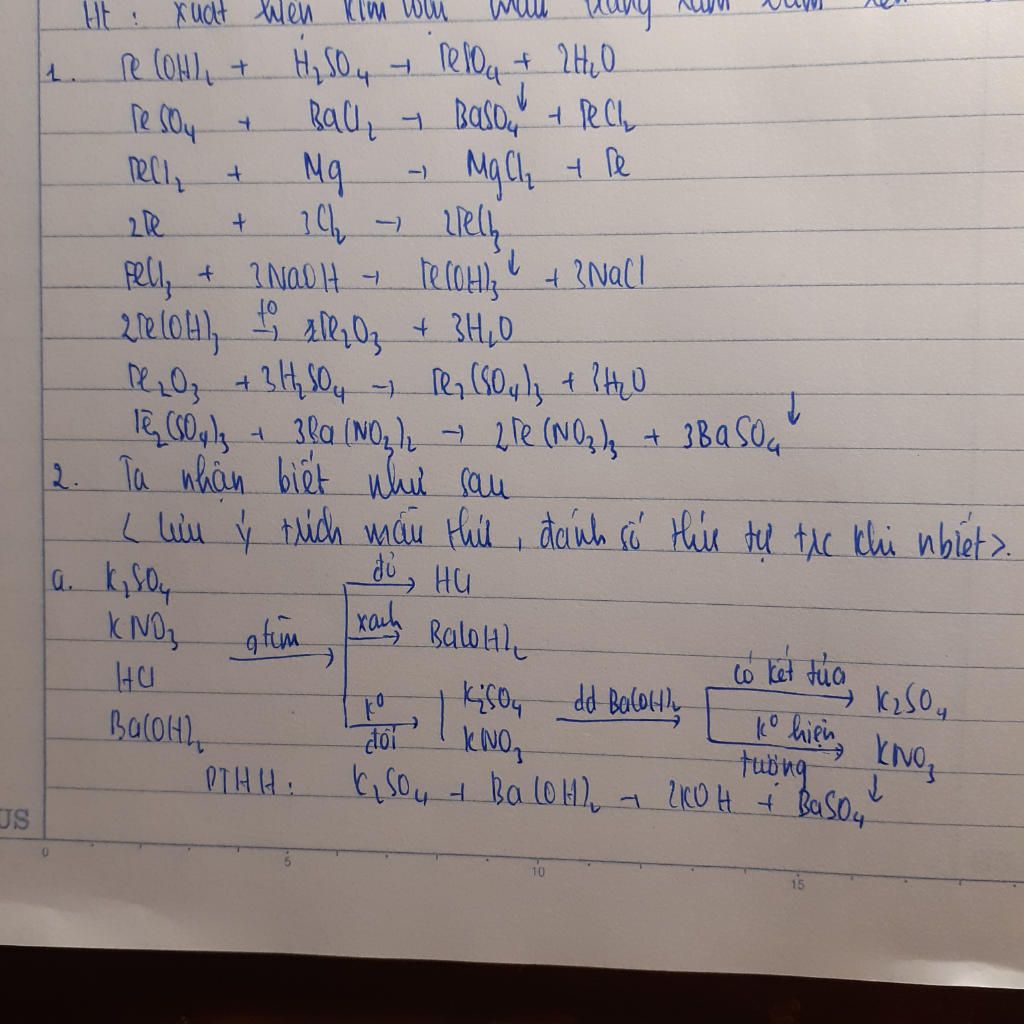 Ht : xuất hiện kim loại màu
1. Fe(OH)₂ + H₂SO₄ → FeSO₄ + 2H₂O
FeSO₄ + BaCl₂ → BaSO₄↓ + FeCl₂
FeCl₂ + Mg → MgCl₂ + Fe
2Fe + 3Cl₂ → 2FeCl₃
FeCl₃ + 3NaOH → Fe(OH)₃↓ + 3NaCl
2Fe(OH)₃ t⁰→ Fe₂O₃ + 3H₂O
Fe₂O₃ + 3H₂SO₄ → Fe₂(SO₄)₃ + 3H₂O
Fe₂(SO₄)₃ + 3Ba(NO₃)₂ → 2Fe(NO₃)₃ + 3BaSO₄↓
2. Ta nhận biết như sau
< lưu ý trích mẫu thử, đánh số thứ tự trc khi nbiết>.
a. K₂SO₄ đỏ → HCl
KNO₃ qtím → xanh → Ba(OH)₂
HCl
Ba(OH)₂ k⁰ đổi → K₂SO₄ KNO₃ dd Ba(OH)₂ → có kết tủa → K₂SO₄
k⁰ hiện tượng → KNO₃
PTHH : K₂SO₄ + Ba(OH)₂ → 2KOH + BaSO₄↓
US
0 5 10 15